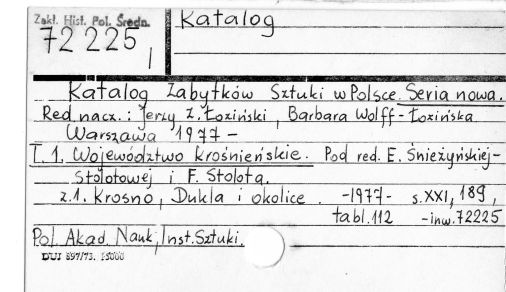 Zakł. Hist. Pol. Średn.
Katalog
72 225,
1
Katalog Zabytków Sztuki w Polsce. Seria nowa.
Red. nacz.: Jerzy Z. Łoziński, Barbara Wolff-Łozińska
Warszawa 1977 -
T. 1. Województwo krośnieńskie. Pod red. E. Śnieżyńskiej-
Stolotowej i F. Stolota.
z.1. Krosno, Dukla i okolice. -1977- s. XXI, 189,
tabl. 112 -inw. 72225
Pol. Akad. Nauk, Inst. Sztuki.
DUJ 897/73. 15000